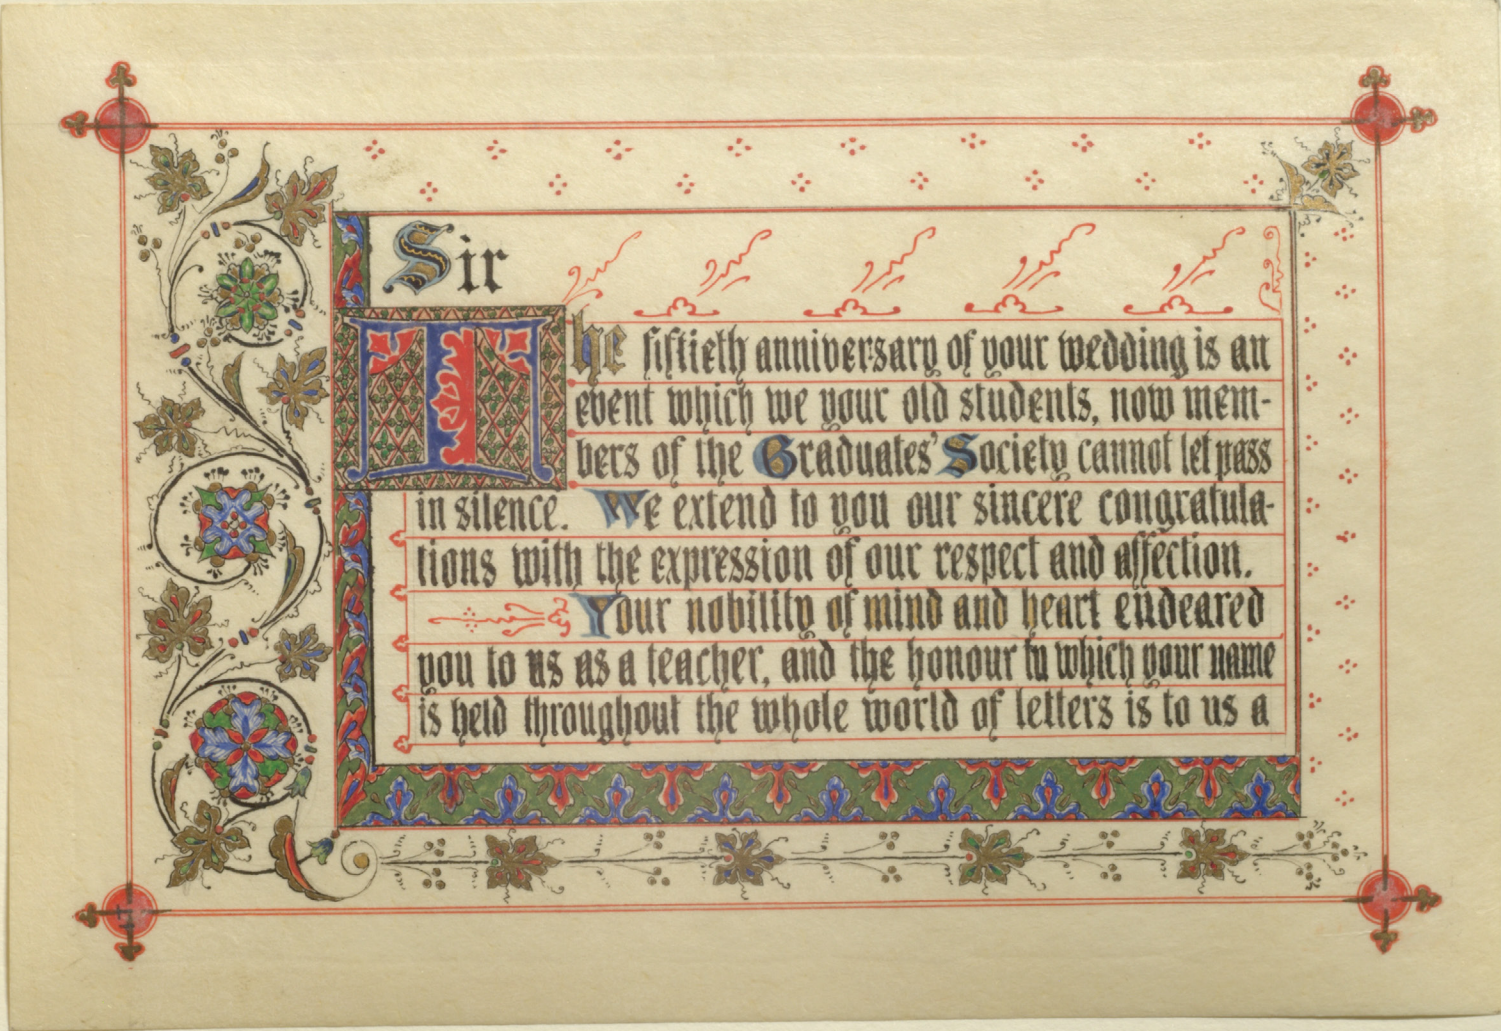 Sir
The fiftieth anniversary of your wedding is an
event which we your old students, now mem-
bers of the Graduates' Society cannot let pass
in silence. We extend to you our sincere congratula-
tions with the expression of our respect and affection.
Your nobility of mind and heart endeared
you to us as a teacher, and the honour in which your name
is held throughout the whole world of letters is to us a